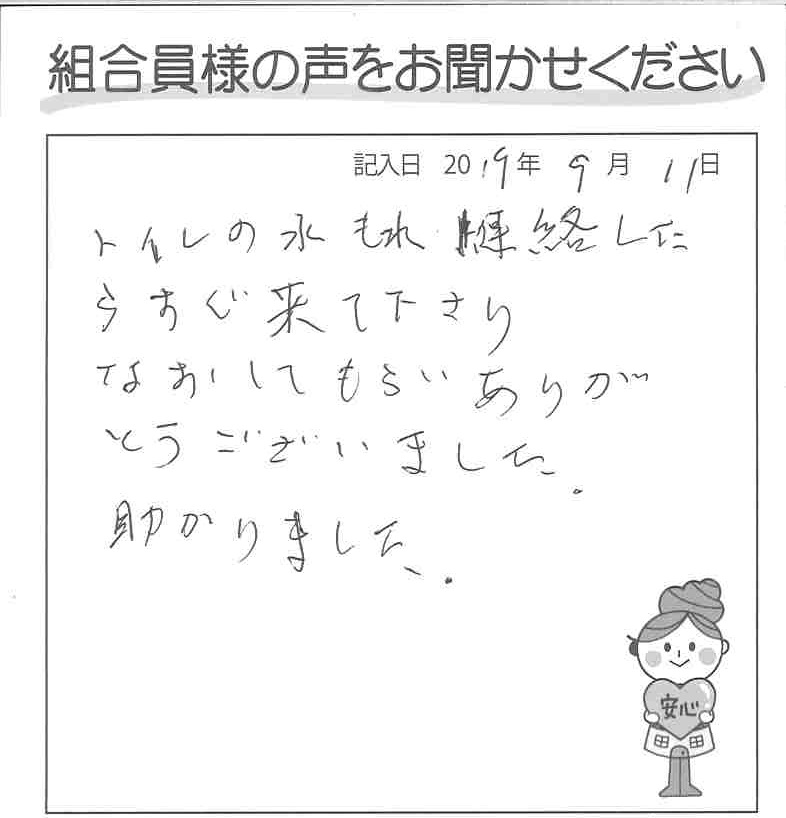 組合員様の声をお聞かせください
記入日 2019年 9月 11日
トイレの水もれ 連絡した
らすぐ来て下さり
なおしてもらいありが
とうございました.
助かりました.
安心